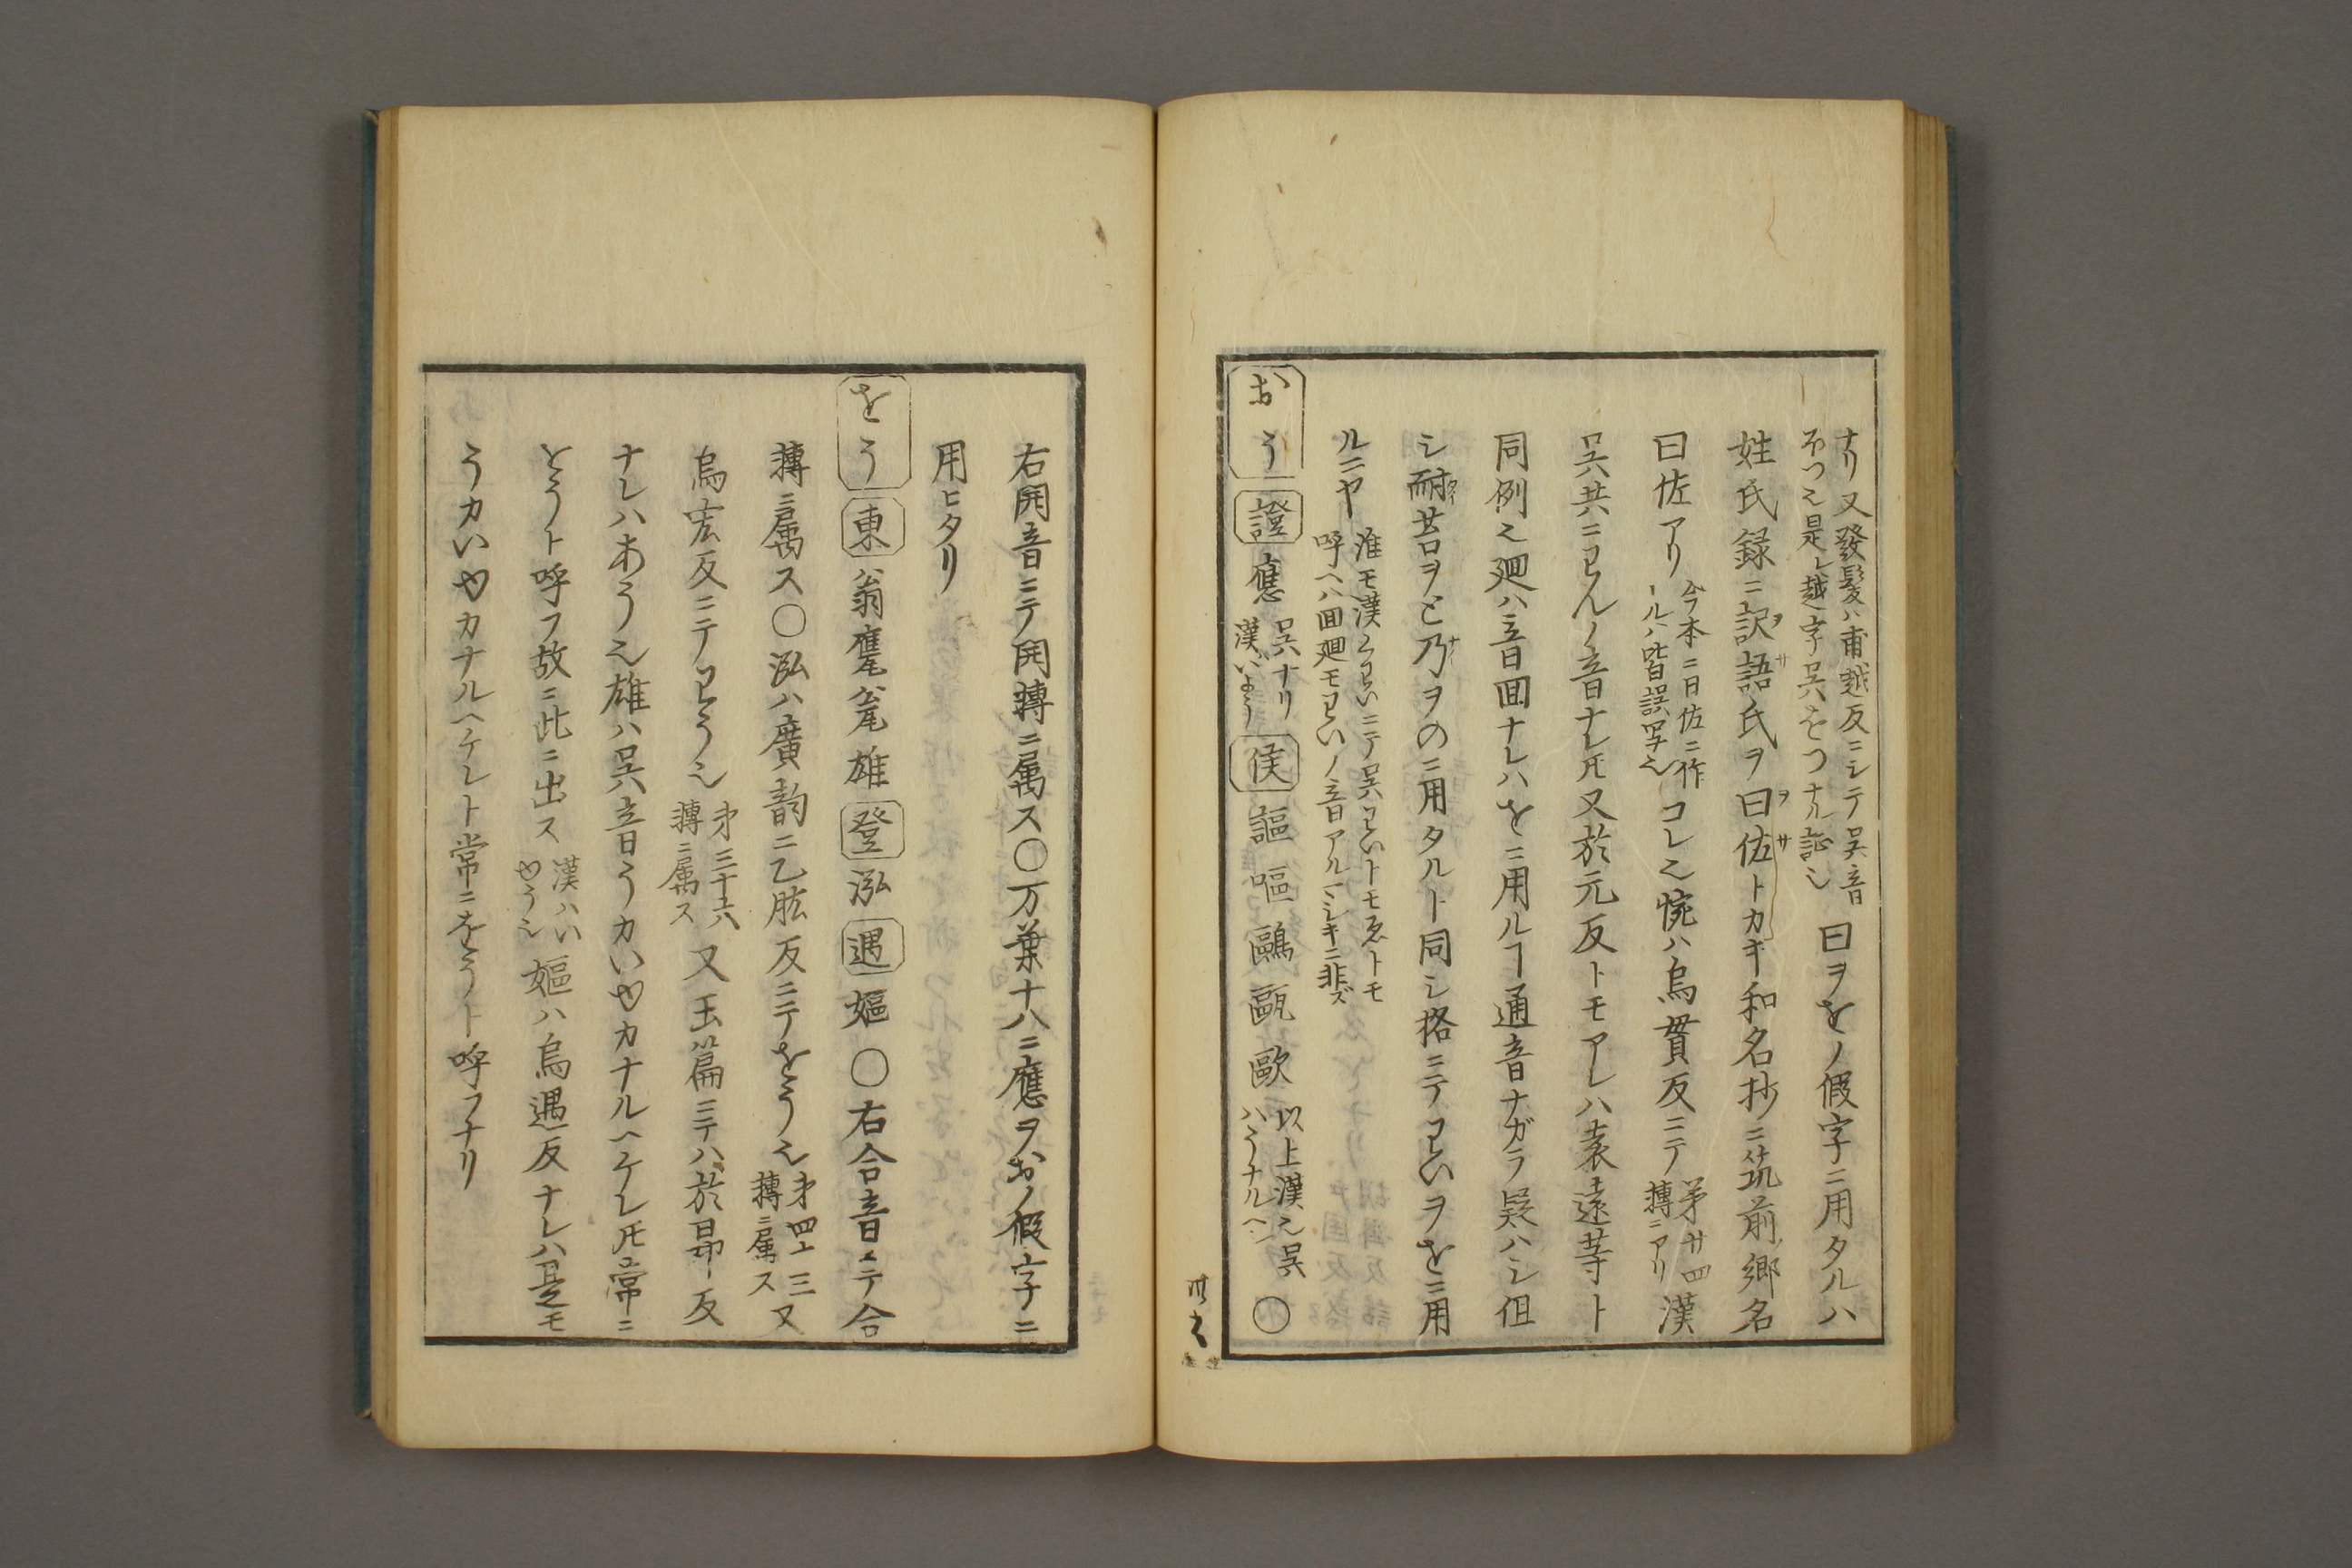 ナリ又發髮ハ甫越反ニシテ呉音
ほつ也是レ越字呉をつナル證也
曰ヲをノ假字ニ用タルハ
姓氏録ニ訳語氏ヲ曰佐トカキ和名抄ニ筑前ノ郷名
曰佐アリ
今本ニ日佐ニ作
ールハ皆誤写也
コレ也惋ハ烏貫反ニテ
第廿四
轉ニアリ
漢
呉共ニわんノ音ナレ𪜈又於元反トモアレハ袁遠等ト
同例也廻ハ音回ナレハをニ用ルヿ通音ナガラ疑ハシ但
シ耐苔ヲと乃ヲのニ用タルト同シ格ニテわいヲをニ用
ルニヤ
淮モ漢くわいニテ呉わいトモゑトモ
呼ヘハ回廻モわいノ音アルマシキニ非ズ
おう 證 應
呉ナリ
漢いよう
侯 謳 嘔 鷗 甌 歐
以上漢也呉
ハうナルヘシ
〇
右開音ニテ開轉ニ属ス〇万葉十八ニ應ヲおノ假字ニ
用ヒタリ
をう 東 翁甕瓮雄 登 泓 遇 嫗 〇右合音ニテ合
轉ニ属ス〇泓ハ廣韵ニ乙肱反ニテをう也
第四十三
轉ニ属ス
又
烏宏反ニテわう也
第三十六
轉ニ属ス
又玉篇ニテハ於昂反
ナレハあう也雄ハ呉音うカいゆカナルヘケレ𪜈常ニ
をうト呼フ故ニ此ニ出ス
漢ハい
ゆう也
嫗ハ烏遇反ナレハ是モ
うカいゆカナルヘケレト常ニをうト呼フナリ